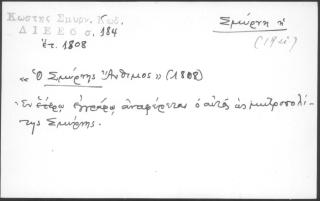 Κωστῆς Σμυρν. Κωδ.
Σμύρνη ἡ
Δ Ι Ε Ε 6 σ. 184
ἔτ. 1808
«Ὁ Σμύρνης Ἄνθιμος» (1808)
Ἐν ἑτέρῳ ἐγγράφῳ ἀναφέρεται ὁ αὐτὸς ὡς μητροπολί-
της Σμύρνης.